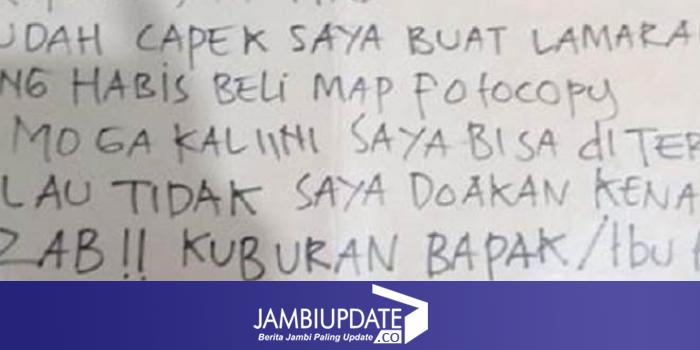 UDAH CAPEK SAYA BUAT LAMARA
NG HABIS BELI MAP FOTOCOPY
MOGA KALIINI SAYA BISA diTER
LAU TIDAK SAYA DOAKAN KENA
ZAB!! KUBURAN BAPAK/Ibu
JAMBIUPDATE
.CO
Berita Jambi Paling Update